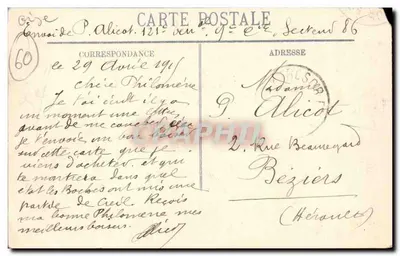 Oise
60
CARTE POSTALE
Envoi de P. Alicot, 121e 9e Cie, Secteur 86
CORRESPONDANCE
ADRESSE
ce 29 Avril 1915
Chère Philomène
Je t'ai écrit il y a
un moment une
avant de me coucher
je t'envoie un
sur cette carte que je
viens d'acheter et qui
te montrera dans quel
état les Boches ont mis une
partie de Creil Reçois
ma bonne Philomène mes
meilleurs baisers
Alicot
Madame
P. Alicot
2, Rue Beauregard
Béziers
(Hérault)